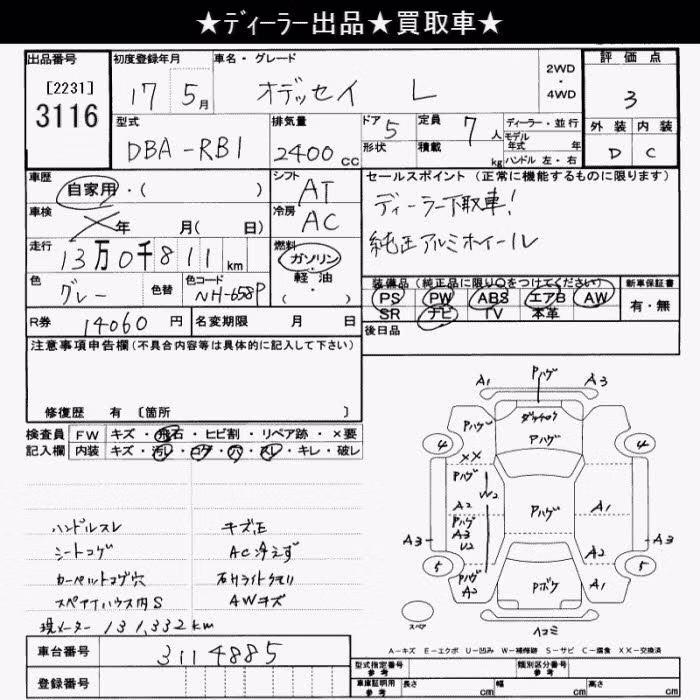 ★ディーラー出品★買取車★
出品番号 初度登録年月 車名・グレード 2WD・4WD 評価点
[2231] 3116 17 5月 オデッセイ L 3
型式 排気量 ドア 5 定員 7人 ディーラー・並行 外装 内装
DBA-RB1 2400cc 形状 積載 kg モデル年式 年 ハンドル 左・右 D C
車歴 シフト セールスポイント (正常に機能するものに限ります)
自家用・( ) AT ディーラー下取車!
車検 年 月( 日) 冷房 AC 純正アルミホイール
走行 13万0千811km 燃料 ガソリン・軽油 ( )
装備品 (純正品に限り○をつけてください) 新車保証書
色 グレー 色替 色コード NH-658P PS PW ABS エアB AW 有・無
SR ナビ TV 本革
R券 14060円 名変期限 月 日 後日品
注意事項申告欄 (不具合内容等は具体的に記入して下さい)
修復歴 有 〔箇所 〕
検査員 FW キズ・飛石・ヒビ割・リペア跡・×要
記入欄 内装 キズ・汚レ・コゲ・穴・スレ・キレ・破レ
ハンドルスレ キズ正
シートコゲ AC冷えず
カーペットコゲ穴 右Hライトクモリ
スペアタイヤハウス内S AWキズ
現メーター 131,332km
車台番号 3114885
登録番号
A1 Pハゲ A3
Pハゲ Pハゲ
4 4
XX
Pハゲ
W2
A2 Pハゲ Pハゲ A1
A3 A3 A3
U2 A2
5 Pハゲ A2 Pボケ A1 5
スペア ヘコミ
A-キズ E-エクボ U-凹み W-補修跡 S-サビ C-腐食 XX-交換済
型式指定番号 参考 類別区分番号 参考
車庫証明用 参考 長さ cm 幅 cm 高さ cm